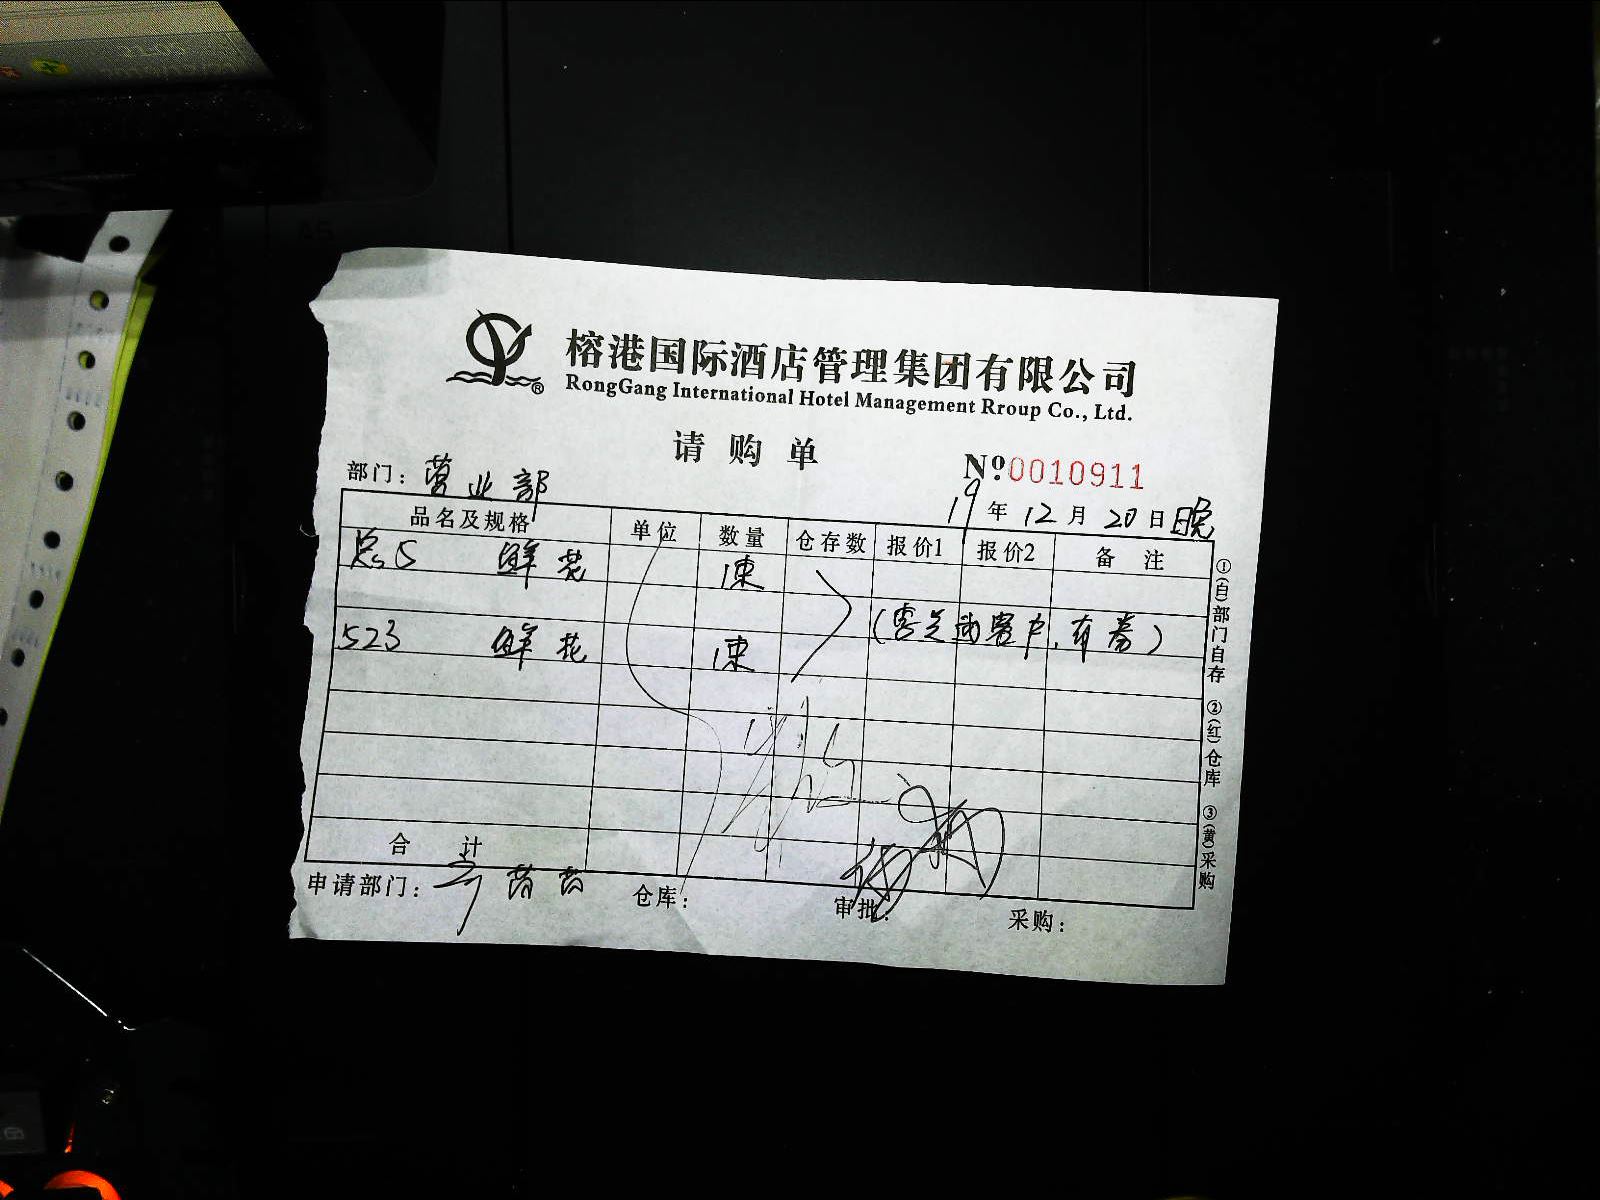 榕港国际酒店管理集团有限公司
RongGang International Hotel Management Rroup Co., Ltd.
请购单
Nº 0010911
部门：营业部
19年12月20日晚
品名及规格 单位 数量 仓存数 报价1 报价2 备注
总5 鲜花 1束
523 鲜花 1束
客户,有券)
合计
申请部门： 仓库： 审批： 采购：
①(白)部门自存 ②(红)仓库 ③(黄)采购